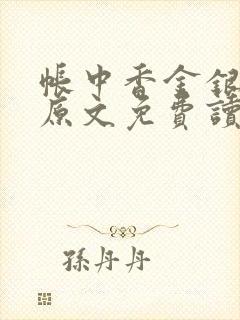 帳中香金銀
原文免費讀
孫丹丹